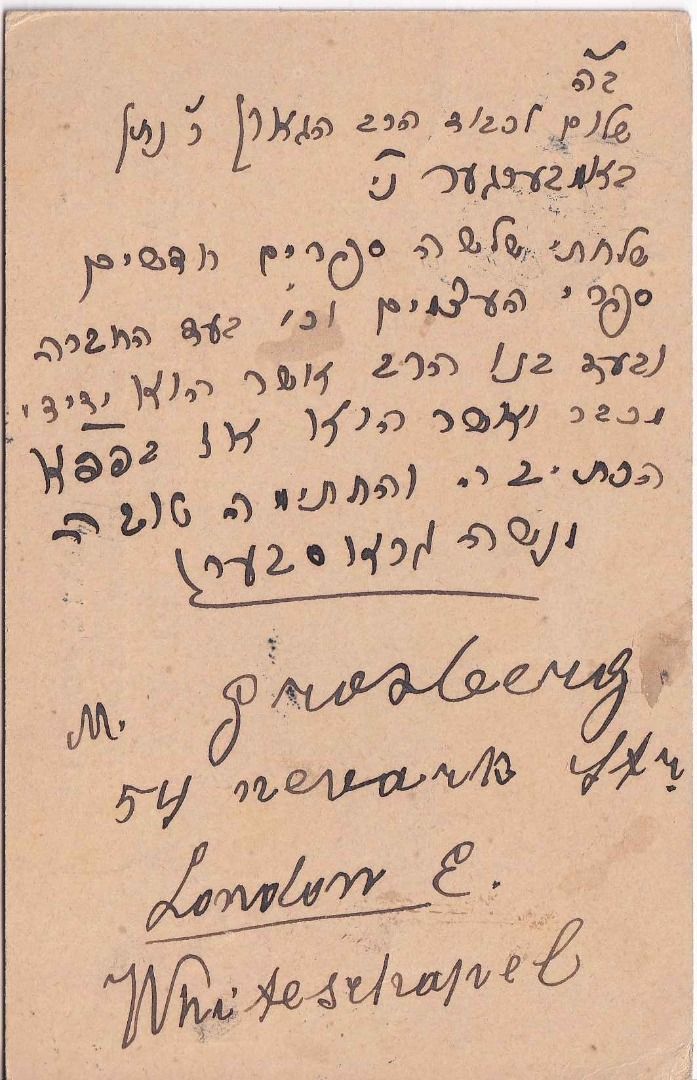 ב"ה
שלום לכבוד הרב הגאון ר' נתן
באמבערגער ני'
שלחתי שלשה ספרים חדשים
ספרי העצמים וכו' בעד החברה
ובעד בנו הרב אשר הוא ידידי
מכבר ואשר הוא או בפפא
הכתיבה והחתימה טובה
מנשה גראסבערג
M. Grosberg
54 newark Str.
London E.
Whiteschapel